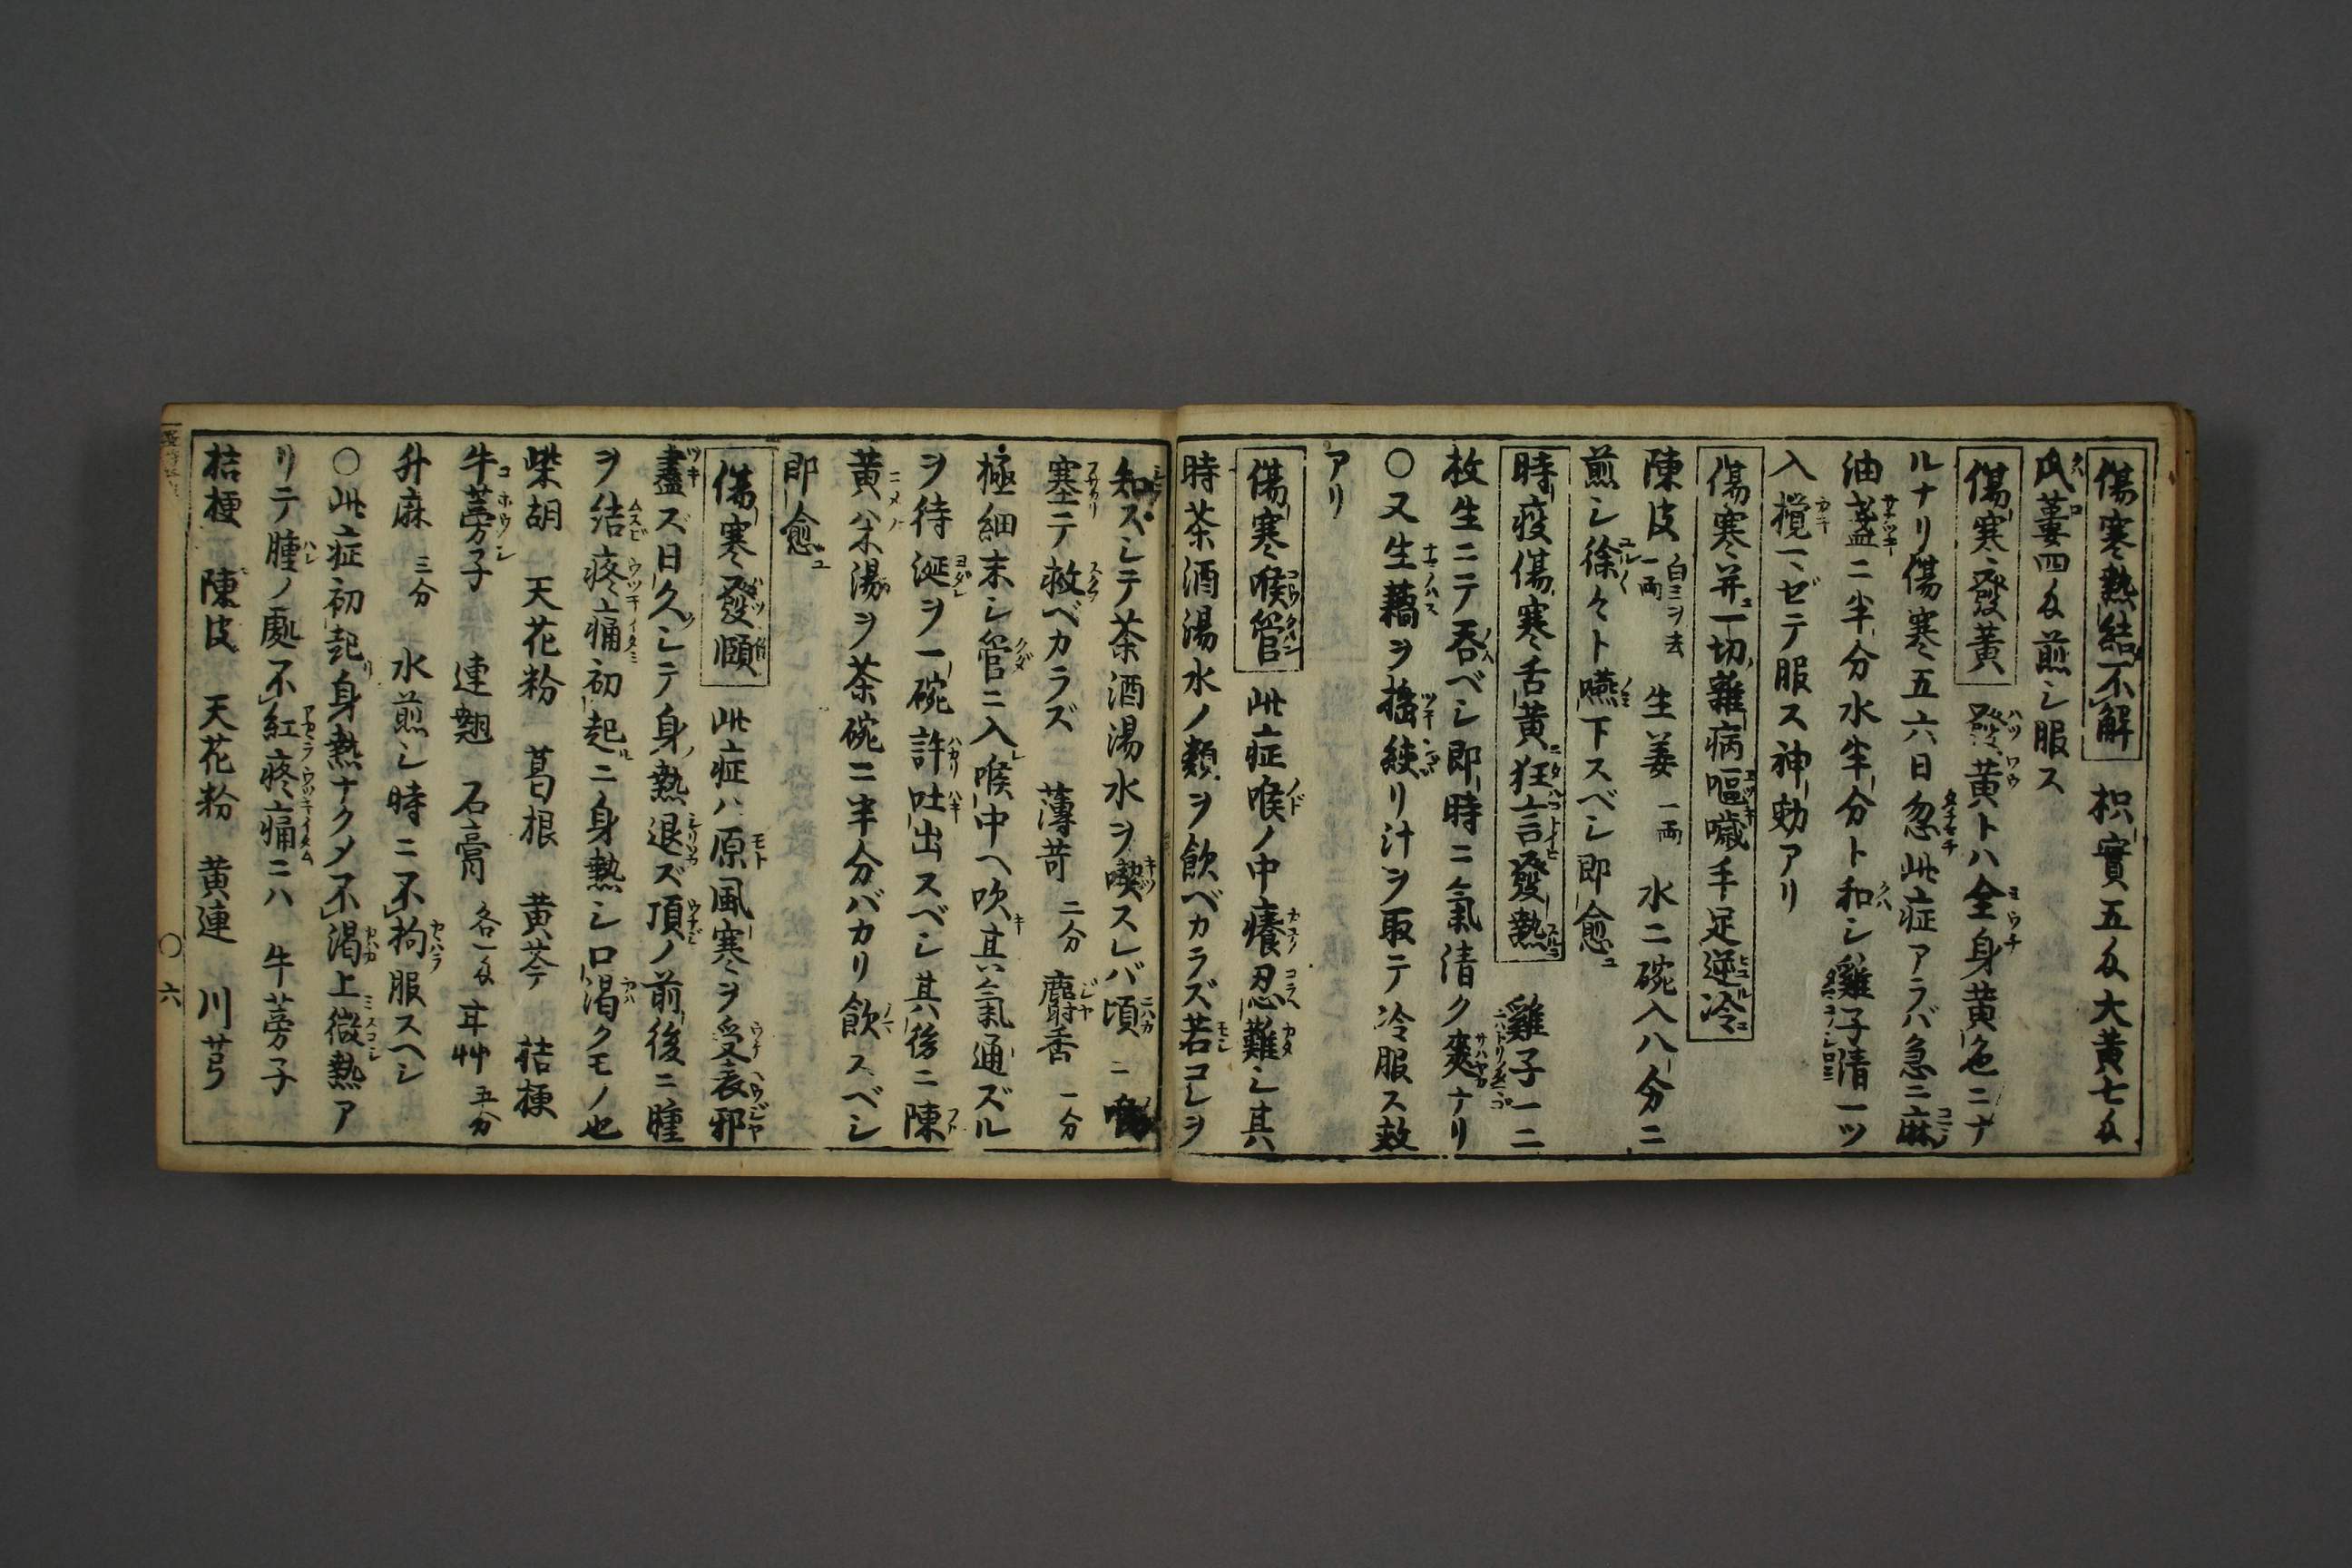 傷寒熱結不解 枳實五匁大黄七匁
瓜蔞四匁煎シ服ス
傷寒發黄 發黄トハ全身黄色ニナ
ルナリ傷寒五六日忽此症アラバ急ニ麻
油盞ニ半分水半分ト和シ雞子清一ツ
入攪マゼテ服ス神効アリ
傷寒并一切雜病嘔噦手足逆冷
陳皮一両白ミヲ去 生姜一両 水二碗入八分ニ
煎シ徐々ト嚥下スベシ即愈ユ
時疫傷寒舌黄狂言發熱 雞子一二
枚生ニテ呑ベシ即時ニ氣清ク爽ナリ
〇又生藕ヲ擣絞リ汁ヲ取テ冷服ス效
アリ
傷寒喉管 此症喉ノ中癢忍難シ其
時茶酒湯水ノ類ヲ飲ベカラズ若コレヲ
知ズシテ茶酒湯水ヲ喫スレバ頃ニ
塞テ救ベカラズ 薄苛二分 麝香一分
極細末シ管ニ入喉中ヘ吹其氣通ズル
ヲ待涎ヲ一碗許吐出スベシ其後ニ陳
黄ハ米湯ヲ茶碗ニ半分バカリ飲スベシ
即愈ユ
傷寒發頤 此症ハ原風寒ヲ受表邪
盡ズ日久シテ身熱退ズ頂ノ前後ニ腫
ヲ結疼痛初起ニ身熱シ口渇クモノ也
柴胡 天花粉 葛根 黄芩 桔梗
牛蒡子 連翹 石膏各一匁 耳艸五分
升麻三分 水煎シ時ニ不拘服スヘシ
〇此症初起身熱ナクメ不渇上微熱ア
リテ腫ノ處不紅疼痛ニハ 牛蒡子
桔梗 陳皮 天花粉 黄連 川芎
〇六